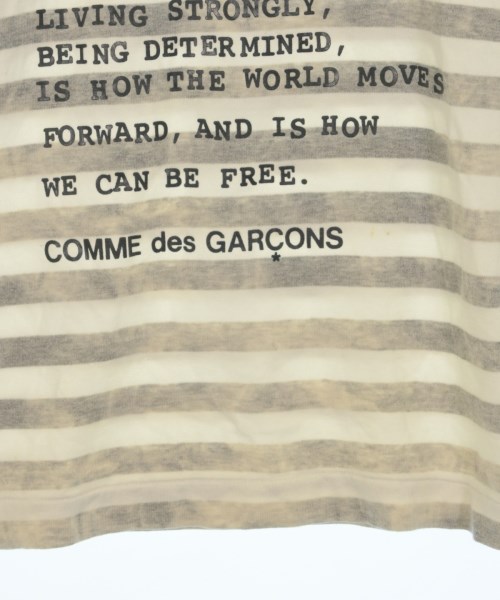 LIVING STRONGLY,
BEING DETERMINED,
IS HOW THE WORLD MOVES
FORWARD, AND IS HOW
WE CAN BE FREE.
COMME des GARÇONS
*